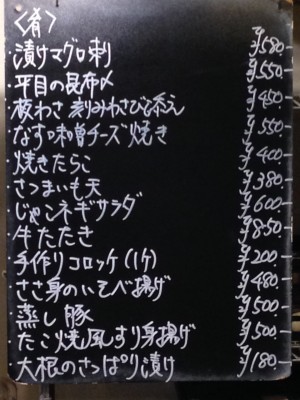 〈肴〉
漬けマグロ刺 ¥580-
平目の昆布〆 ¥550-
板わさ 刻みわさび添え ¥450-
なす味噌チーズ焼き ¥550-
焼きたらこ ¥400-
さつまいも天 ¥380.
じゃこネギサラダ ¥600-
牛たたき ¥850-
手作りコロッケ(1ケ) ¥200.
ささ身のいそべ揚げ ¥480.
蒸し豚 ¥500-
たこ焼風すり身揚げ ¥500.
大根のさっぱり漬け ¥180.